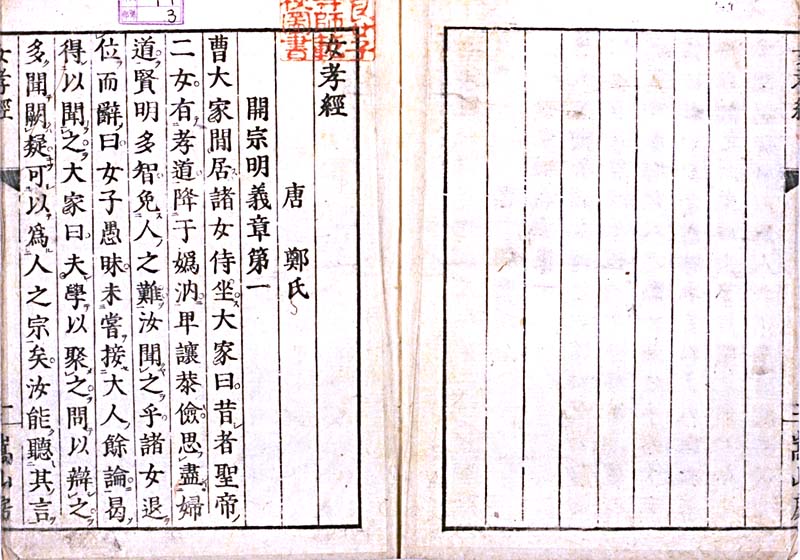 女孝經
唐 鄭氏
開宗明義章第一
曹大家閒居諸女侍坐大家曰昔者聖帝
二女有孝道降于嬀汭卑讓恭儉思盡婦
道賢明多智免人之難汝聞之乎諸女退
位而辭曰女子愚昧未嘗接大人餘論曷
得以聞之大家曰夫學以聚之問以辯之
多聞闕疑可以爲人之宗矣汝能聽其言
女孝經 二 嵩山房